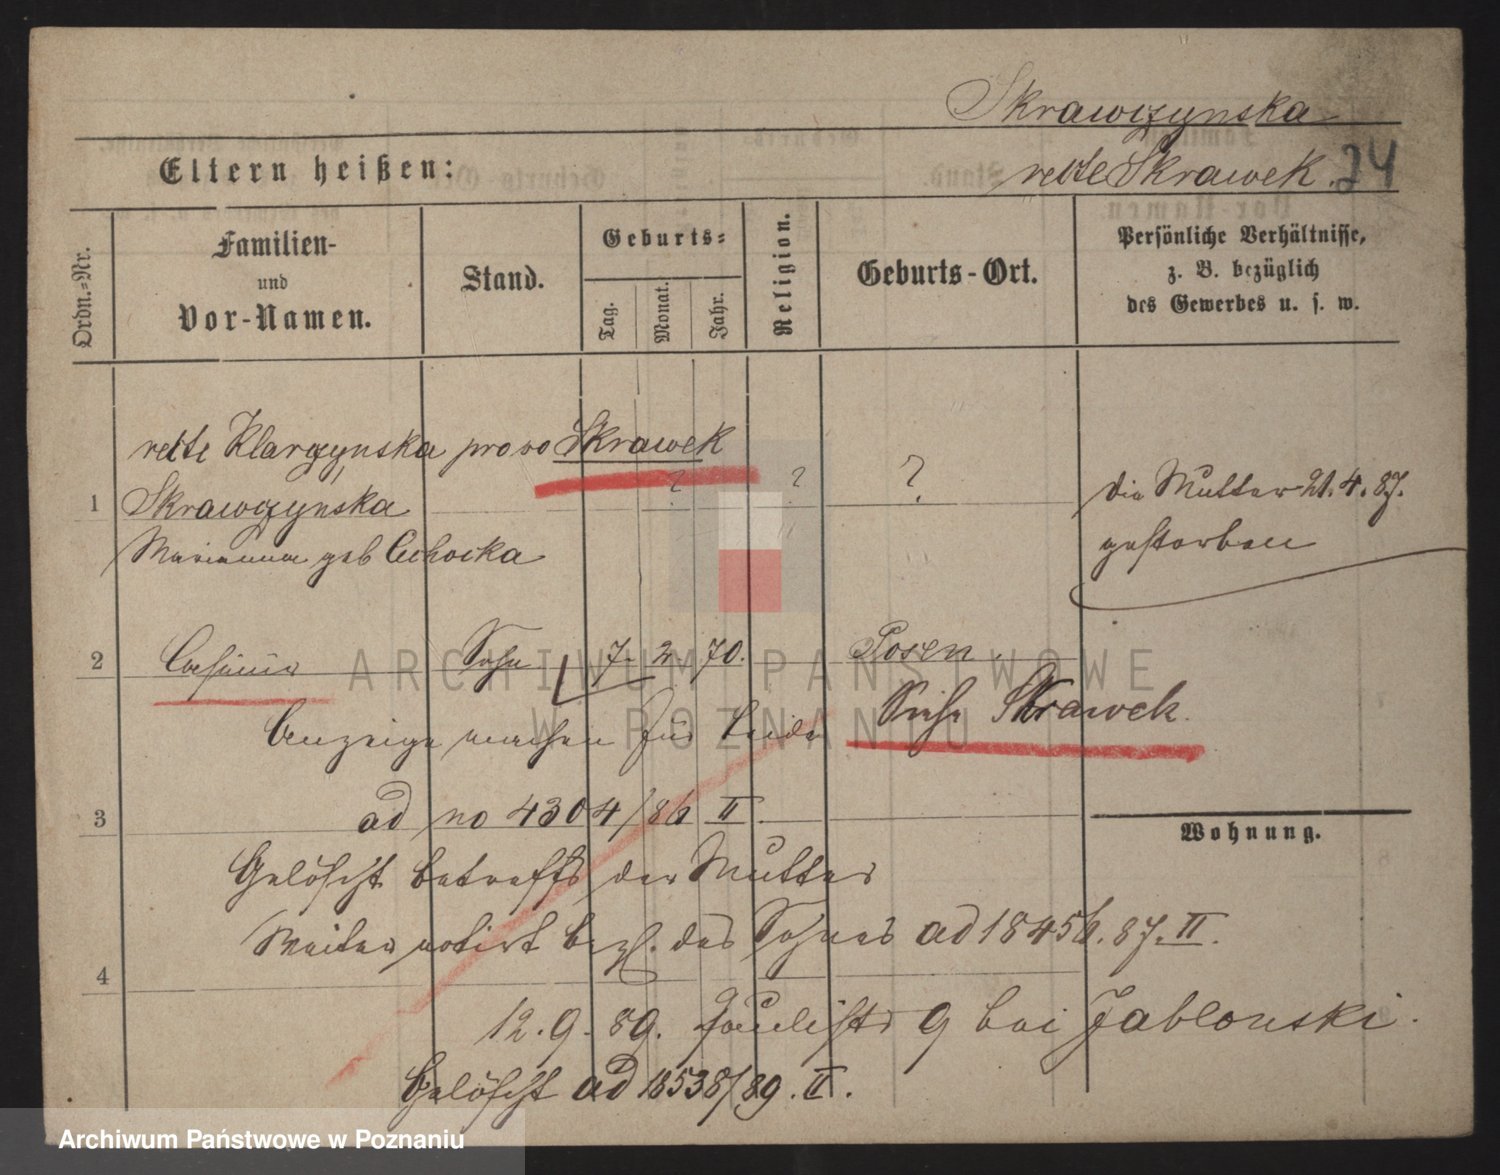 Skrawczynska
recte Skrawek. 24
Eltern heißen:
Ordn.-Nr.
Familien- und Vor-Namen.
Stand.
Geburts-
Tag.
Monat.
Jahr.
Religion.
Geburts-Ort.
Persönliche Verhältnisse,
z. B. bezüglich
des Gewerbes u. s. w.
recte Klarczynska provo Skrawek
1 Skrawczynska ? ? ? die Mutter 21.4.87.
Marianna geb Cichocka gestorben
2 Casimir Sohn 7. 2. 70. Posen.
Siehe Skrawek.
Anzeige machen für beide
3 ad no 4304/86 II.
Wohnung.
Gelöscht betreffs der Mutter
Weiter notirt bezl. des Sohnes ad 18456.87.II.
4
12.9.89. 9 bei Jablonski.
Gelöscht ad 18538/89.II.
ARCHIWUM PAŃSTWOWE
W POZNANIU
Archiwum Państwowe w Poznaniu